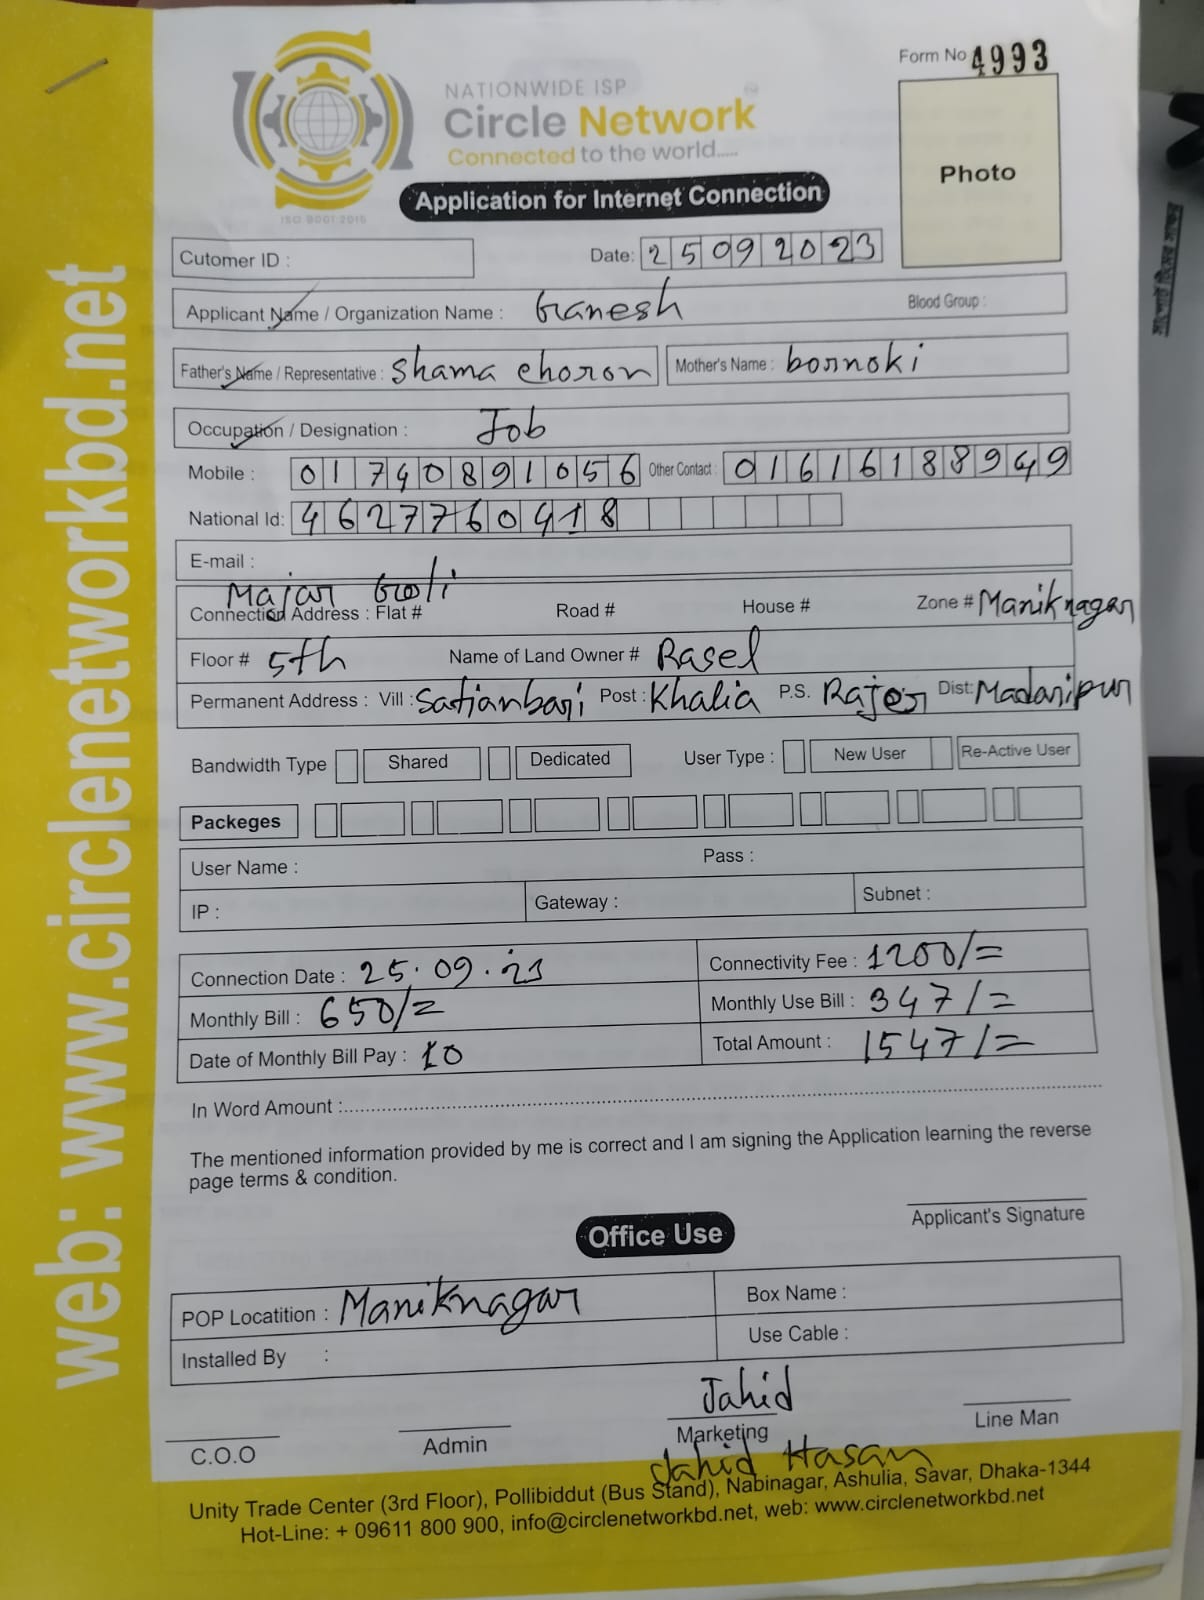 Form No 4993
NATIONWIDE ISP
Circle Network
Connected to the world.....
ISO 9001:2015
Application for Internet Connection
Photo
Cutomer ID :
Date: 25092023
Applicant Name / Organization Name : Ganesh Blood Group :
Father's Name / Representative : Shama choron Mother's Name : bornoki
Occupation / Designation : Job
Mobile : 01740891056 Other Contact : 01616188949
National Id: 4627760418
E-mail :
Majar Goli
Connection Address : Flat # Road # House # Zone # Maniknagar
Floor # 5th Name of Land Owner # Rasel
Permanent Address : Vill : Satianbari Post : Khalia P.S. Rajor Dist: Madaripur
Bandwidth Type Shared Dedicated User Type : New User Re-Active User
Packeges
User Name : Pass :
IP : Gateway : Subnet :
Connection Date : 25.09.23 Connectivity Fee : 1200/=
Monthly Bill : 650/= Monthly Use Bill : 347/=
Date of Monthly Bill Pay : 10 Total Amount : 1547/=
In Word Amount :
The mentioned information provided by me is correct and I am signing the Application learning the reverse
page terms & condition.
Applicant's Signature
Office Use
POP Locatition : Maniknagar Box Name :
Installed By : Use Cable :
Jahid
C.O.O Admin Marketing Line Man
Jahid Hasan
Unity Trade Center (3rd Floor), Pollibiddut (Bus Stand), Nabinagar, Ashulia, Savar, Dhaka-1344
Hot-Line: + 09611 800 900, info@circlenetworkbd.net, web: www.circlenetworkbd.net
web: www.circlenetworkbd.net